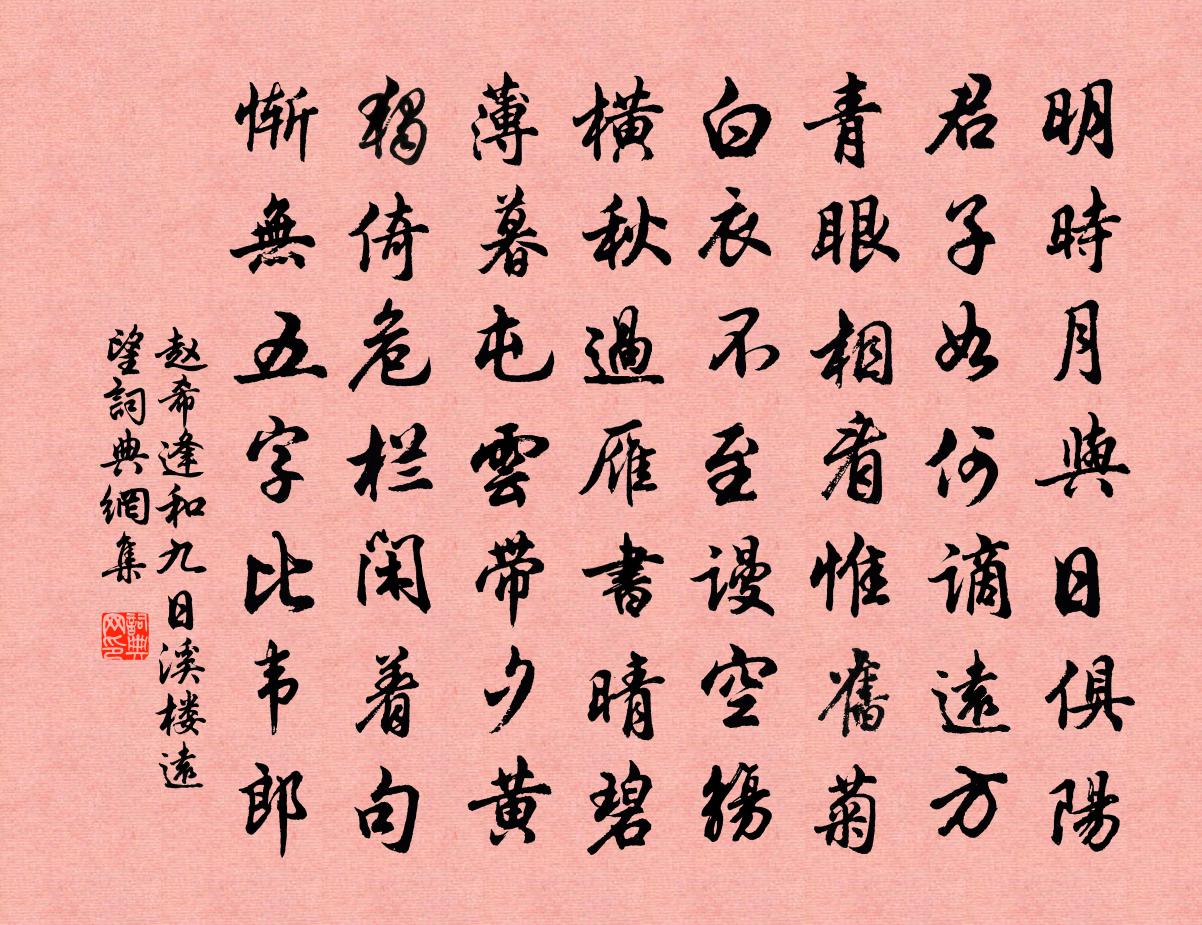 明時月與日俱陽
君子如何謫遠方
青眼相看惟舊菊
白衣不至謾空觴
橫秋過雁書晴碧
薄暮屯雲帶夕黃
獨倚危栏閑着句
慚無五字比韦郎
赵希逢和九日溪楼遠
望詞典網集
詞典网印